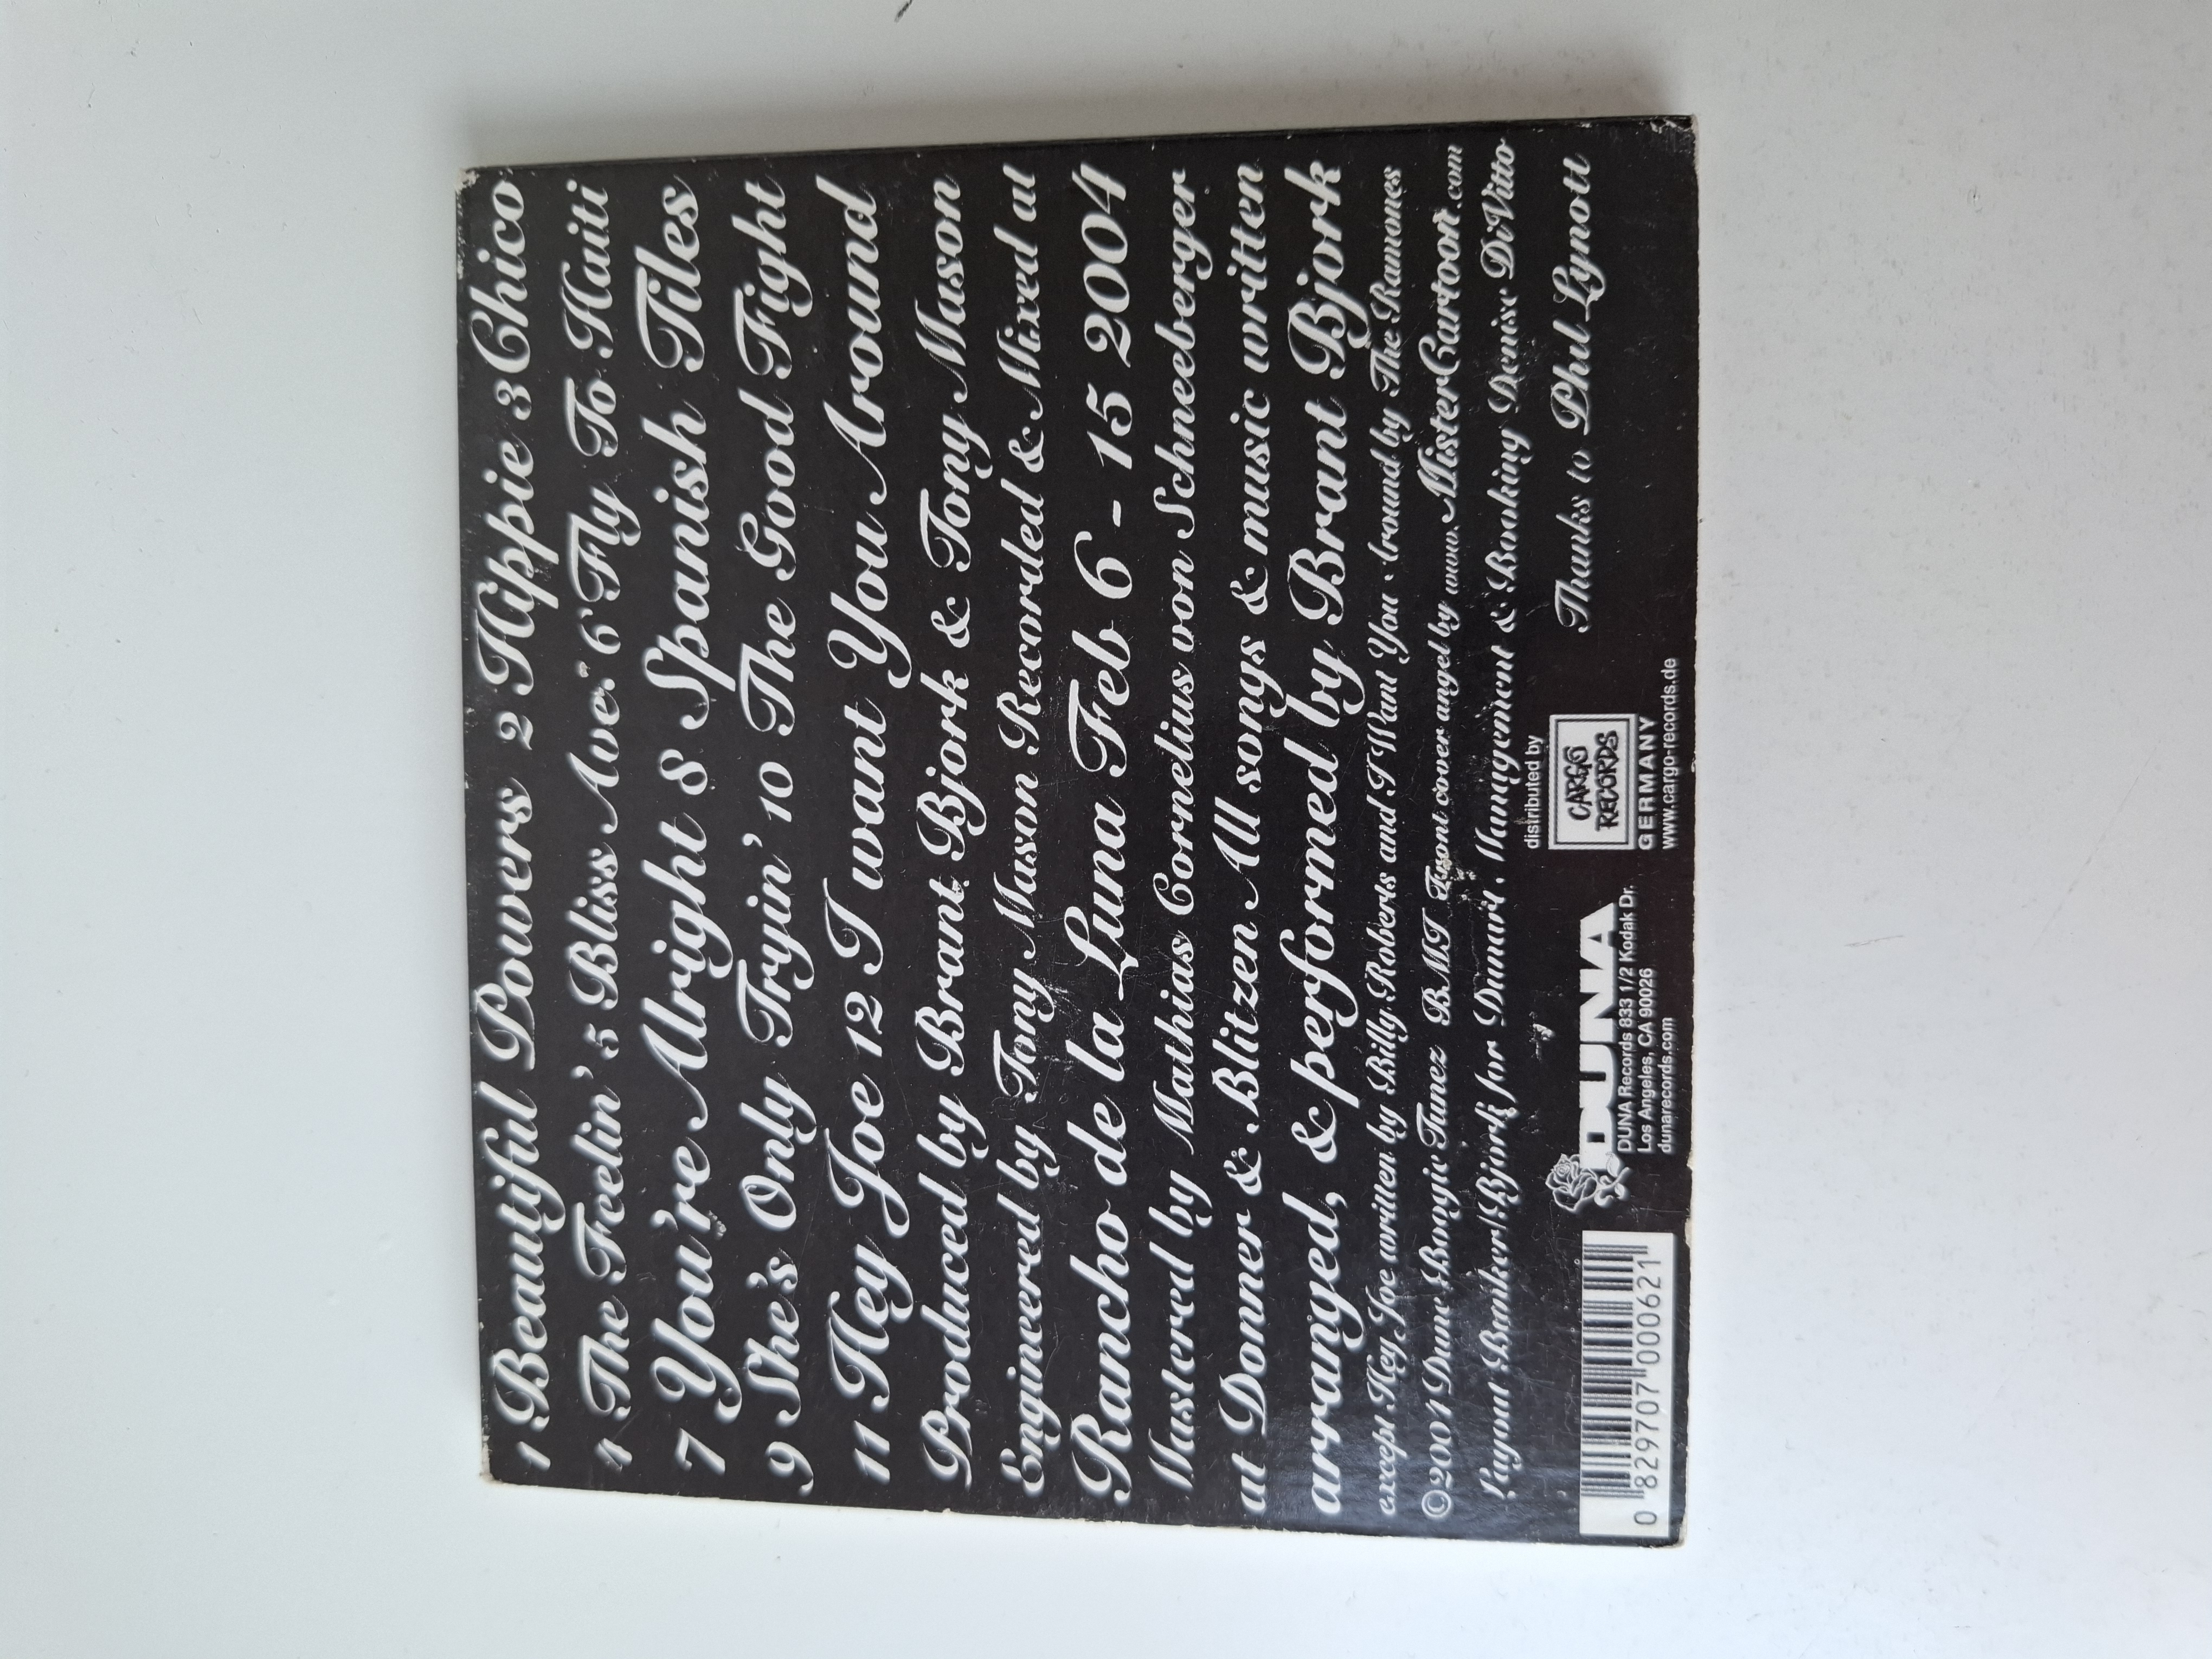 1 Beautiful Powers 2 Hippie 3 Chico
4 The Feelin' 5 Bliss Ave." 6 Fly To Haiti
7 You're Alright 8 Spanish Tiles
9 She's Only Tryin' 10 The Good Fight
11 Hey Joe 12 I want You Around
Produced by Brant Bjork & Tony Mason
Engineered by Tony Mason Recorded & Mixed at
Rancho de la Luna Feb 6 - 15 2004
Mastered by Mathias Cornelius von Schneeberger
at Donner & Blitzen All songs & music written
arranged, & performed by Brant Bjork
except Hey Joe written by Billy Roberts and I Want You Around by The Ramones
©2004 Dune Boogie Tunez B.M.I Front cover angel by www.MisterCartoon.com
Layout Bunker/Bjork for Dunart. Management & Booking Denise DiVitto
Thanks to Phil Lynott
DUNA
DUNA Records 833 1/2 Kodak Dr.
Los Angeles, CA 90026
dunarecords.com
distributed by
CARGO
RECORDS
GERMANY
www.cargo-records.de
0 829707 000621